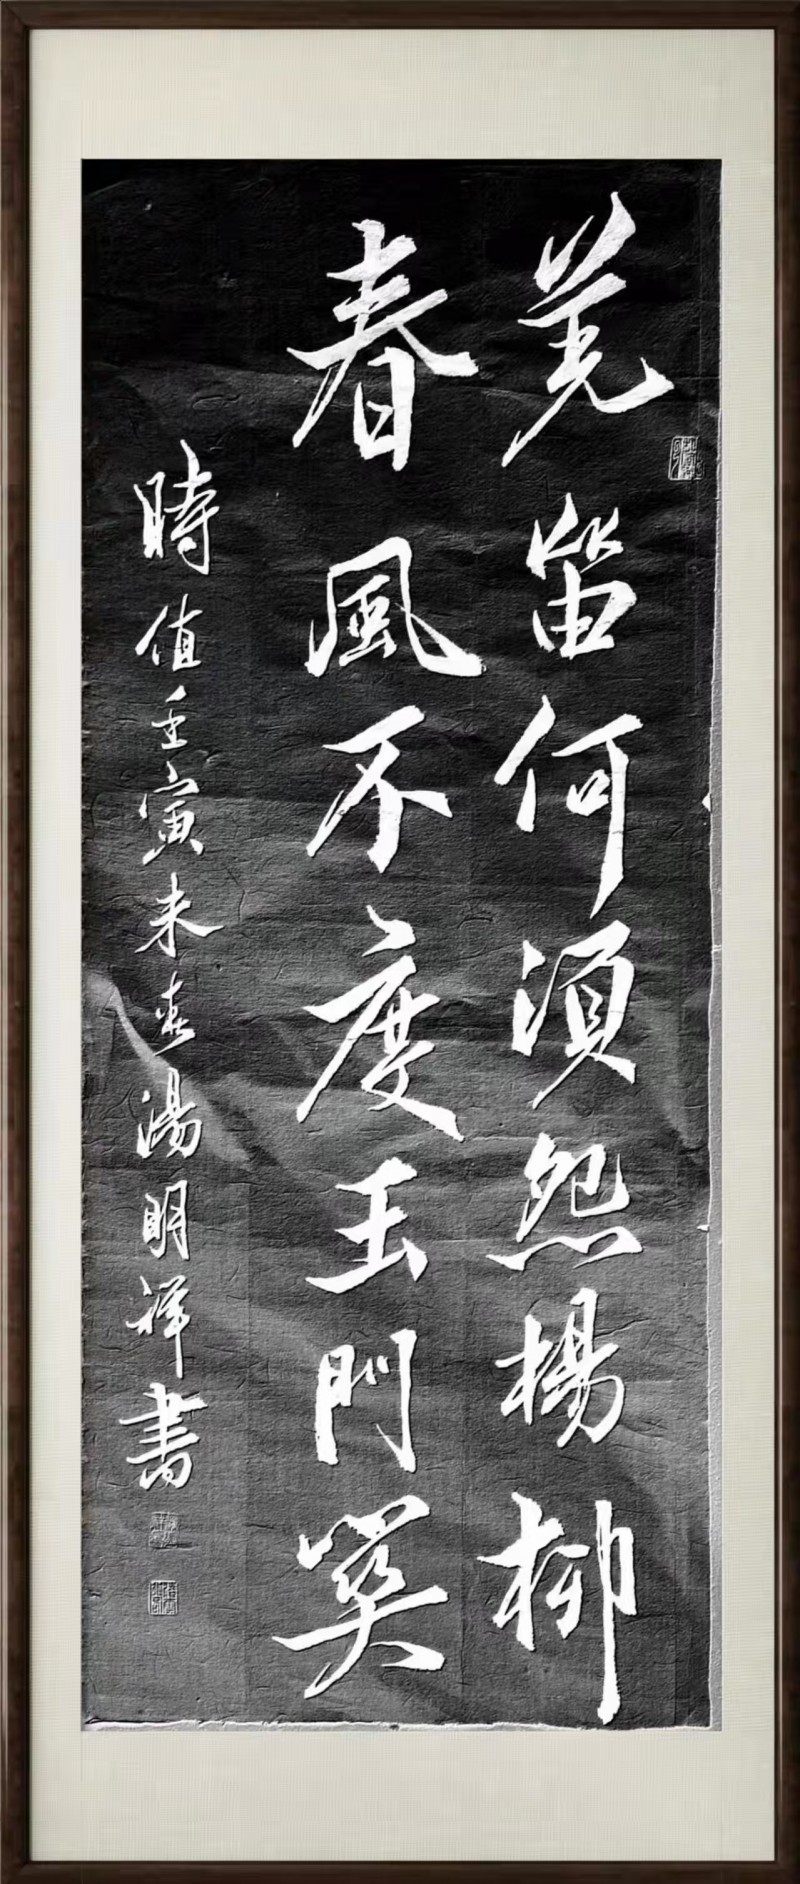 羌笛何須怨楊柳
春風不度玉門关
時值壬寅未春湯明祥書